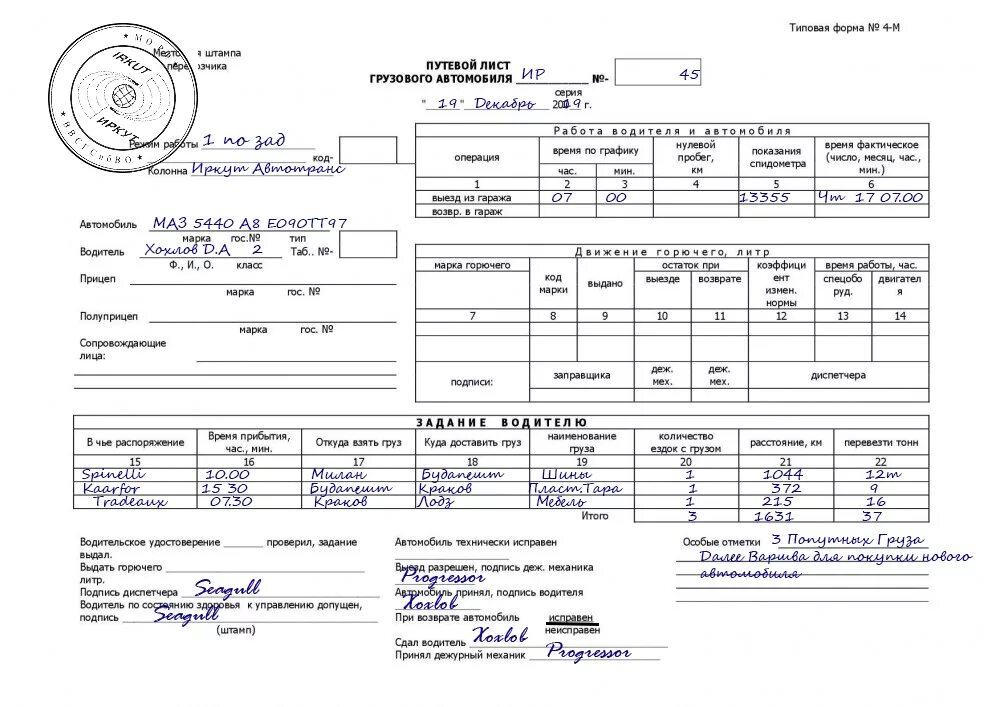 Типовая форма № 4-М
Место для штампа
перевозчика
* МО Р
IRKUT
ИРКУТ
* В В С Г С п б В О *
ПУТЕВОЙ ЛИСТ
ГРУЗОВОГО АВТОМОБИЛЯ ИР №- 45
серия
" 19 " Декабрь 2019 г.
Режим работы 1 по зад
код-
Колонна Иркут Автотранс
Автомобиль МАЗ 5440 А8 Е090ТТ97
марка гос.№ тип
Водитель Хохлов D.A 2 Таб.. №-
Ф., И., О. класс
Прицеп
марка гос. №
Полуприцеп
марка гос. №
Сопровождающие
лица:
Работа водителя и автомобиля
операция время по графику нулевой пробег, км показания спидометра время фактическое (число, месяц, час., мин.)
час. мин.
1 2 3 4 5 6
выезд из гаража 07 00 13355 Чт 17 07.00
возвр. в гараж
Движение горючего, литр
марка горючего код марки выдано остаток при коэффициент измен. нормы время работы, час.
выезде возврате спецобо руд. двигател я
7 8 9 10 11 12 13 14
подписи: заправщика деж. мех. деж. мех. диспетчера
ЗАДАНИЕ ВОДИТЕЛЮ
В чье распоряжение Время прибытия, час., мин. Откуда взять груз Куда доставить груз наименование груза количество ездок с грузом расстояние, км перевезти тонн
15 16 17 18 19 20 21 22
Spinelli 10.00 Милан Будапешт Шины 1 1044 12т
Kaarfor 15 30 Будапешт Краков Пласт.Тара 1 372 9
Tradeaux 07.30 Краков Лодз Мебель 1 215 16
Итого 3 1631 37
Водительское удостоверение проверил, задание
выдал.
Выдать горючего
литр.
Подпись диспетчера Seagull
Водитель по состоянию здоровья к управлению допущен,
подпись Seagull
(штамп)
Автомобиль технически исправен
Выезд разрешен, подпись деж. механика
Progressor
Автомобиль принял, подпись водителя
Xoxlов
При возврате автомобиль исправен
неисправен
Сдал водитель Xoxlов
Принял дежурный механик Progressor
Особые отметки 3 Попутных Груза
Далее Варшва для покупки нового
автомобиля